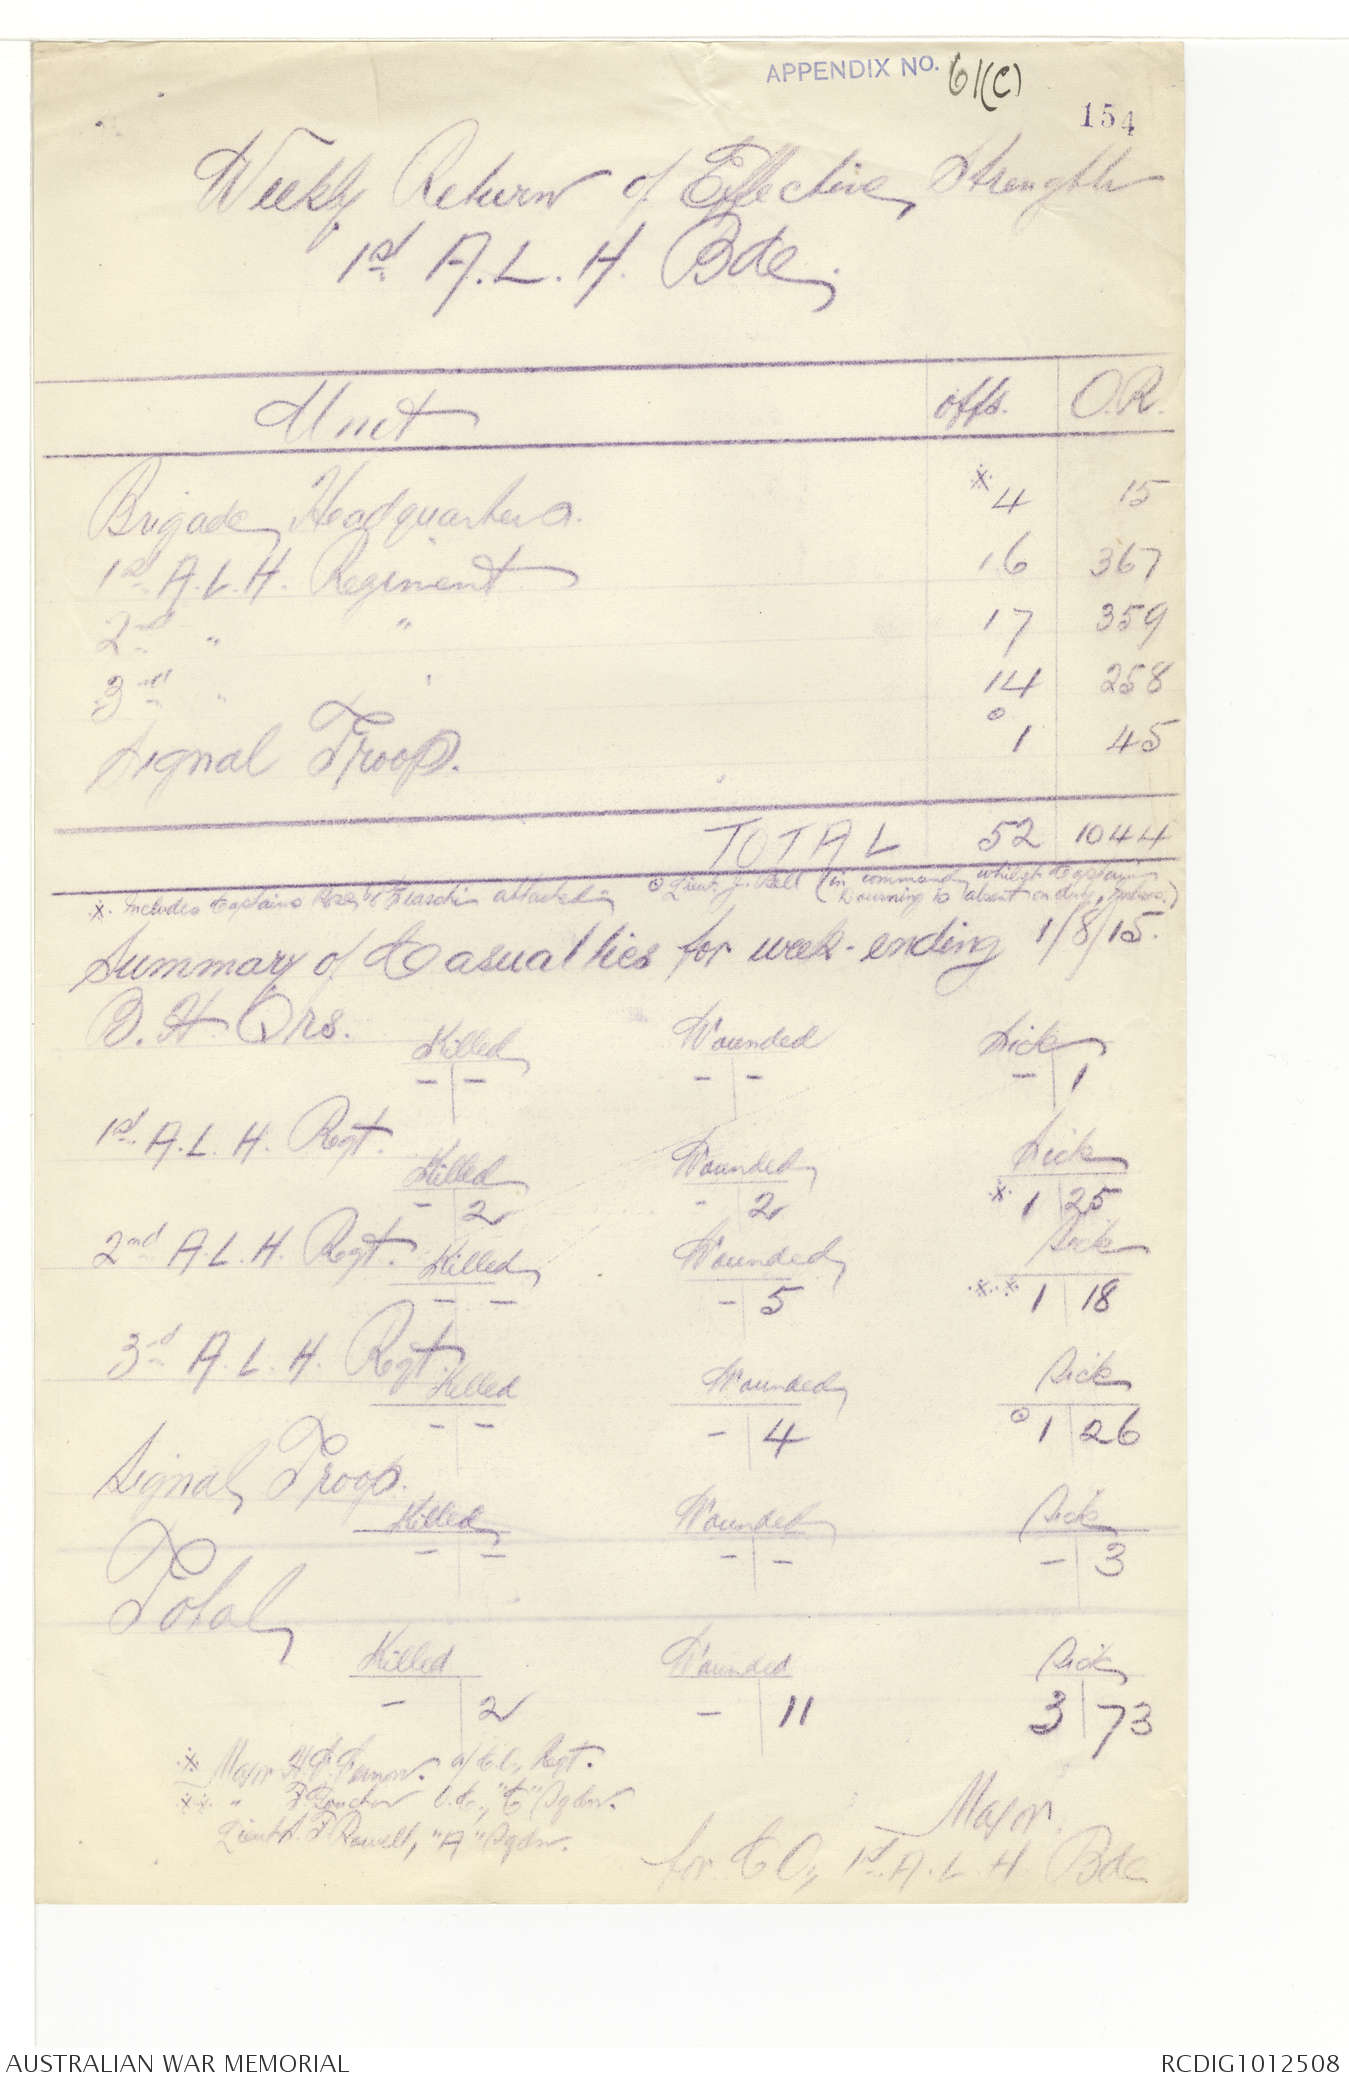 APPENDIX NO. 61(C)
154
Weekly Return of Effective Strength
1st A.L.H. Bde.
Unit offs. O.R.
Brigade Headquarters. * 4 15
1st A.L.H. Regiment 16 367
2nd " " 17 359
3rd " " 14 258
Signal Troop. ⊙ 1 45
TOTAL 52 1044
*. Includes Captains attached ⊙ Lieut. J. Ball (in command whilst Captain
is absent on duty,
Summary of Casualties for week-ending 1/8/15.
B. H. Qrs.
Killed Wounded Sick
- - - - - 1
1st A.L.H. Regt.
Killed Wounded Sick
- 2 - 2 * 1 25
2nd A.L.H. Regt. Killed Wounded Sick
- - - 5 ** 1 18
3rd A.L.H. Regt.
Killed Wounded Sick
- - - 4 ⊙ 1 26
Signal Troop.
Killed Wounded Sick
- - - - - 3
Total
Killed Wounded Sick
- 2 - 11 3 73
* Major Regt.
** " "C" Sqdn.
Lieut "A" Sqdn.
Major.
for CO., 1st A.L.H. Bde
AUSTRALIAN WAR MEMORIAL
RCDIG1012508